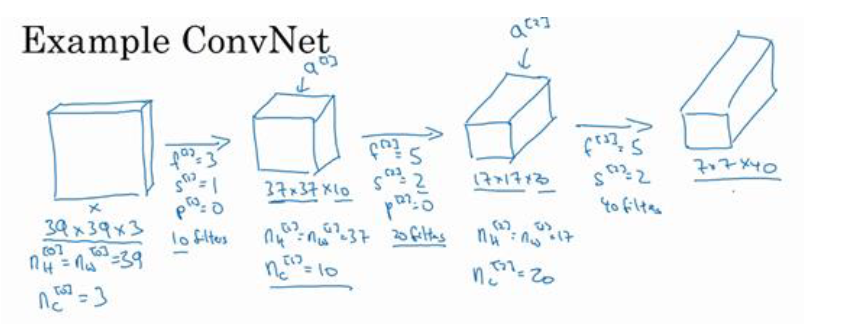 Example ConvNet
a[1]
a[2]
x
39×39×3
n_H[0]=n_W[0]=39
n_C[0]=3
f[1]=3
s[1]=1
p[1]=0
10 filters
37×37×10
n_H[1]=n_W[1]=37
n_C[1]=10
f[2]=5
s[2]=2
p[2]=0
20 filters
17×17×20
n_H[2]=n_W[2]=17
n_C[2]=20
f[3]=5
s[3]=2
40 filters
7×7×40